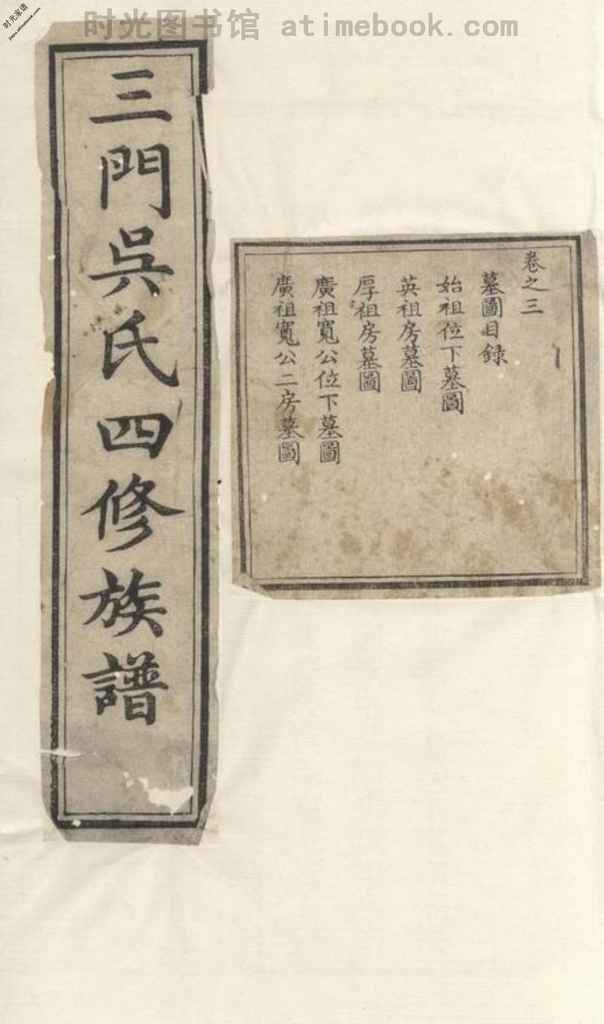 时光图书馆 atimebook.com
时光家谱
三門吳氏四修族譜
卷之三
墓圖目錄
始祖位下墓圖
英祖房墓圖
厚祖房墓圖
廣祖寬公位下墓圖
廣祖寬公二房墓圖